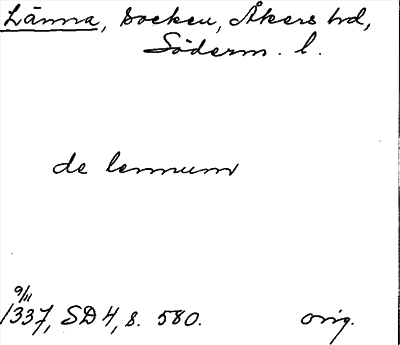 Länna, socken, Åkers hd,
Söderm. l.
de lennum
9/11
1337, SD 4, s. 580. orig.